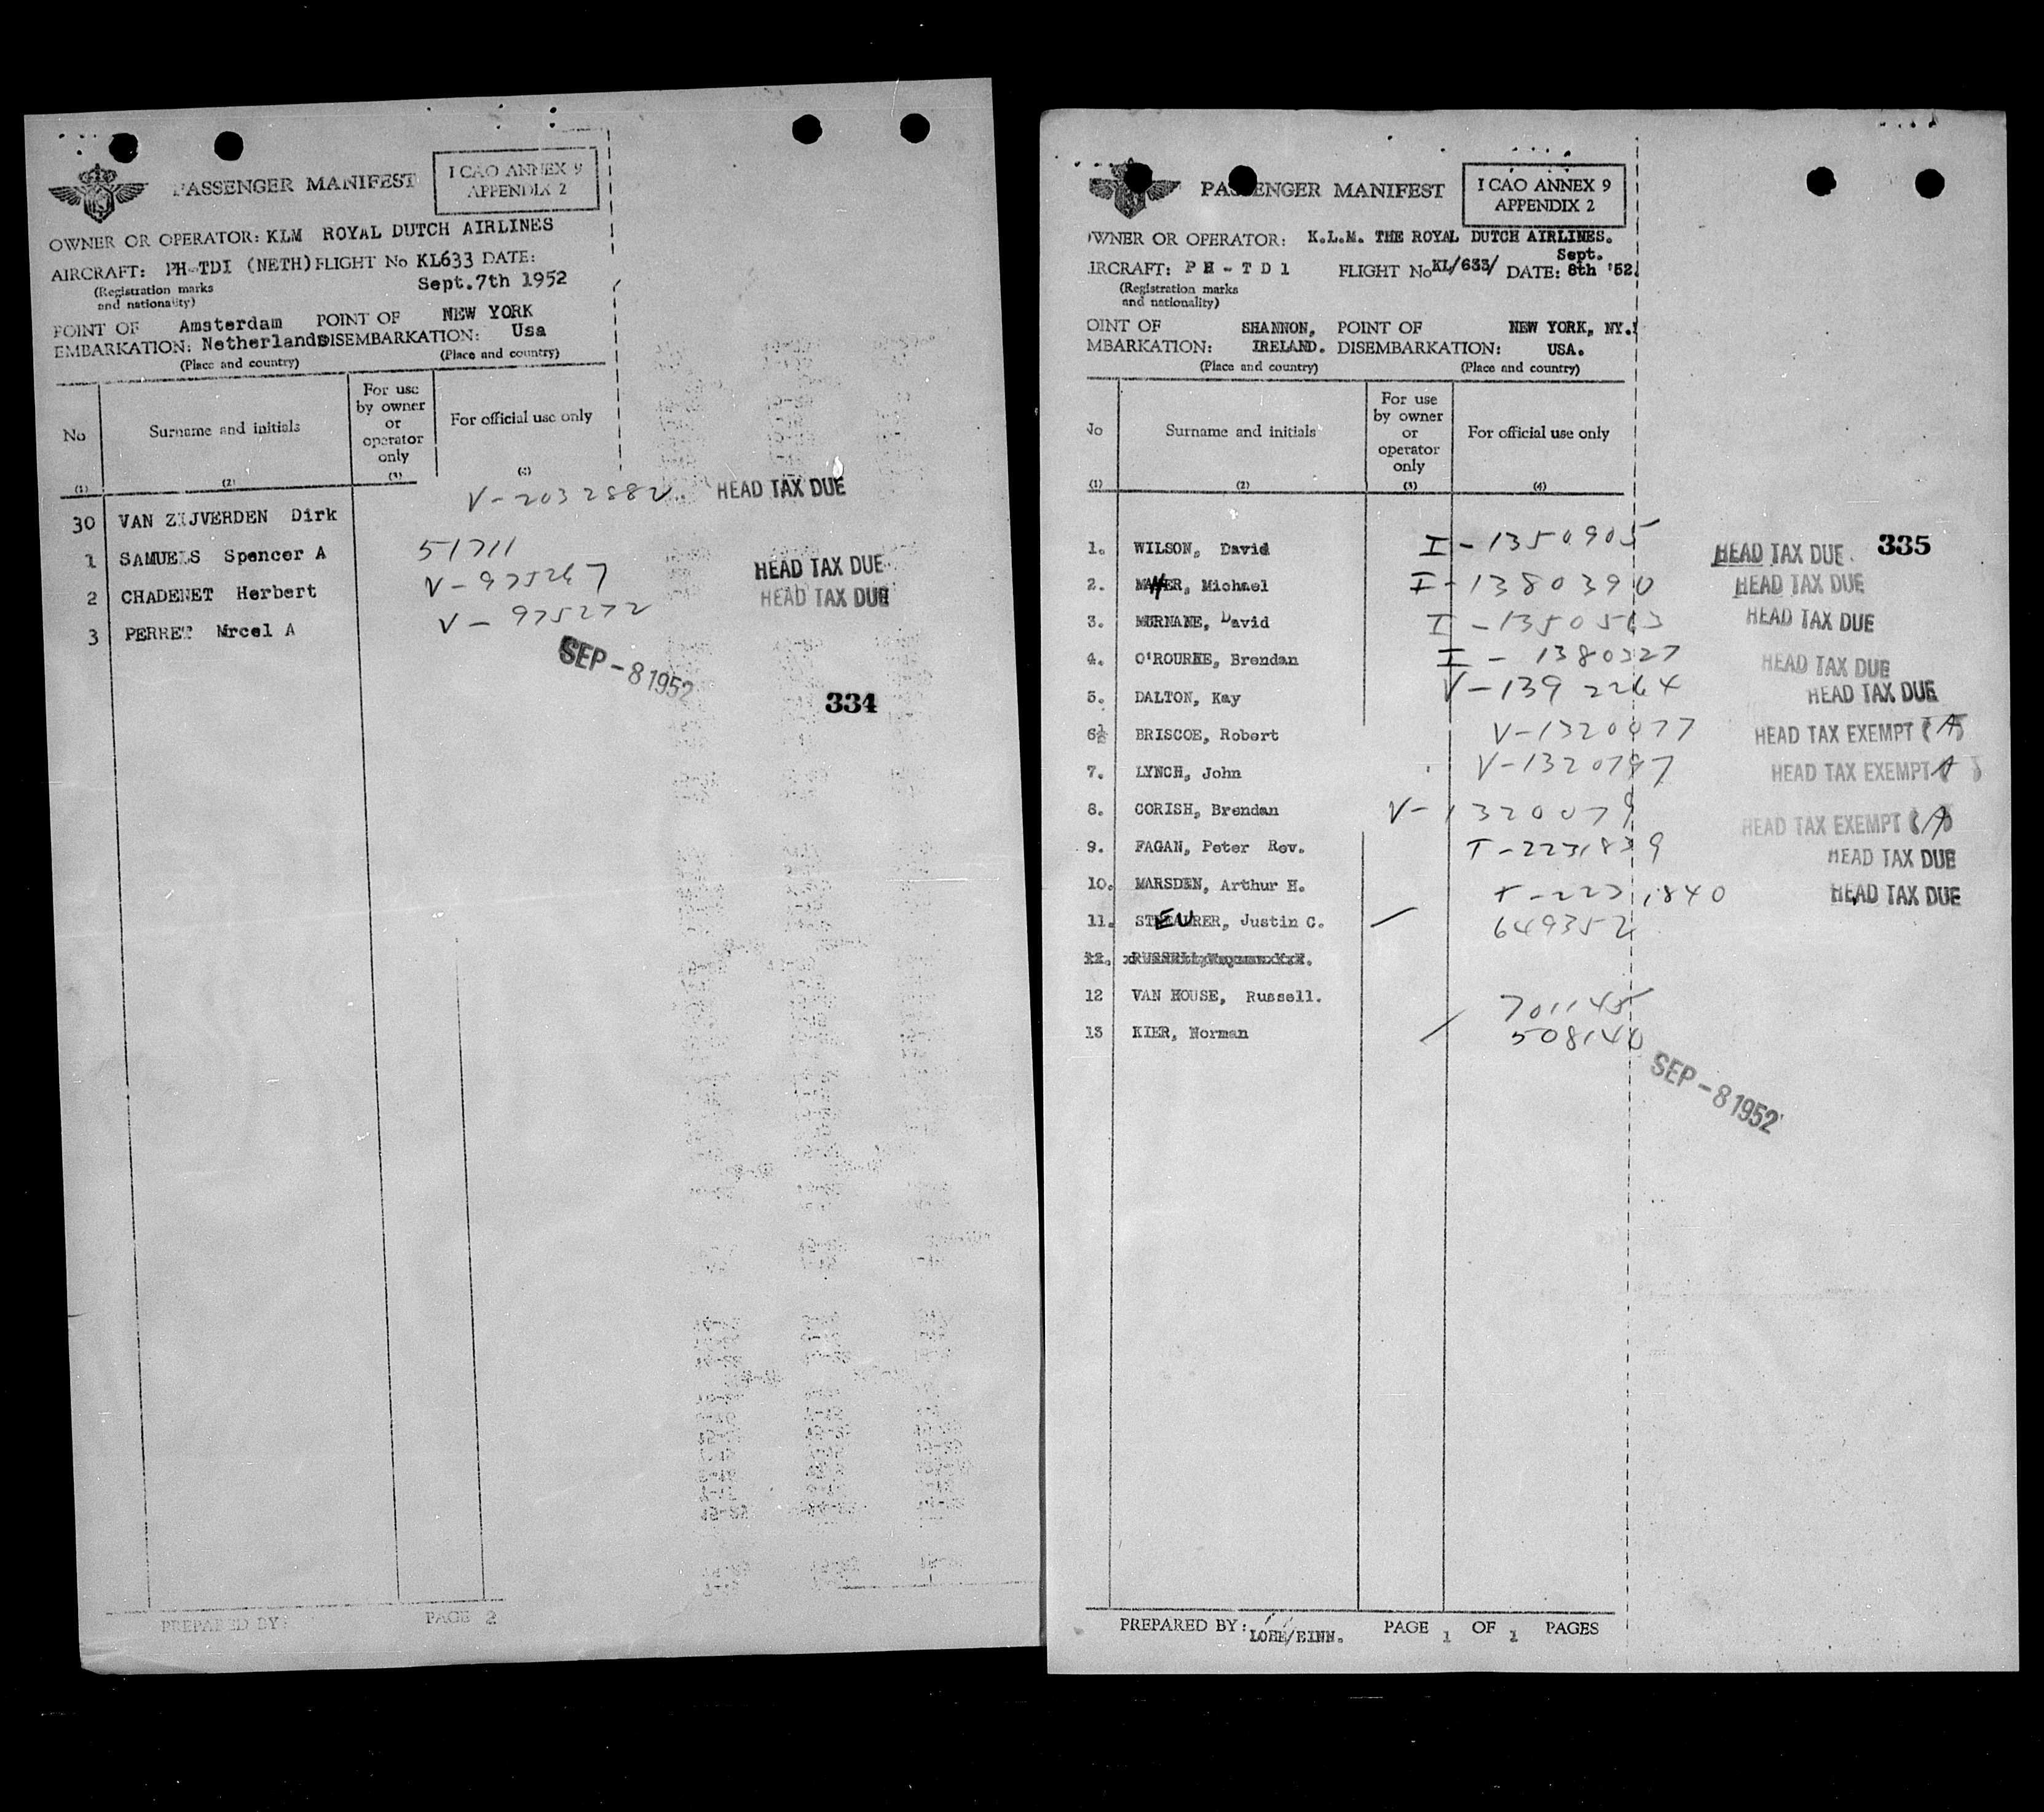 PASSENGER MANIFEST
I CAO ANNEX 9
APPENDIX 2
OWNER OR OPERATOR: KLM ROYAL DUTCH AIRLINES
AIRCRAFT: PH-TDI (NETH) FLIGHT No KL633 DATE:
(Registration marks
and nationality)
Sept.7th 1952
POINT OF Amsterdam POINT OF NEW YORK
EMBARKATION: Netherlands DISEMBARKATION: Usa
(Place and country) (Place and country)
No Surname and initials For use by owner or operator only For official use only
(1) (2) (3) (4)
V-2032882 HEAD TAX DUE
30 VAN ZIJVERDEN Dirk
1 SAMUELS Spencer A 51711
2 CHADENET Herbert V-975267 HEAD TAX DUE
3 PERRET Mrcel A V-975272 HEAD TAX DUE
SEP-8 1952
334
PREPARED BY: PAGE 2
PASSENGER MANIFEST
I CAO ANNEX 9
APPENDIX 2
OWNER OR OPERATOR: K.L.M. THE ROYAL DUTCH AIRLINES.
Sept.
AIRCRAFT: PH-TD1 FLIGHT No KL/633/ DATE: 8th '52.
(Registration marks
and nationality)
OINT OF SHANNON, POINT OF NEW YORK, NY.
MBARKATION: IRELAND. DISEMBARKATION: USA.
(Place and country) (Place and country)
No Surname and initials For use by owner or operator only For official use only
(1) (2) (3) (4)
1. WILSON, David I-1350905 HEAD TAX DUE. 335
2. Michael I-1380390 HEAD TAX DUE
3. MURNANE, David I-1350513 HEAD TAX DUE
4. O'ROURKE, Brendan I-1380327 HEAD TAX DUE
5. DALTON, Kay V-1392264 HEAD TAX DUE
6 BRISCOE, Robert V-1320077 HEAD TAX EXEMPT (A)
7. LYNCH, John V-1320797 HEAD TAX EXEMPT A
8. CORISH, Brendan V-1320079 HEAD TAX EXEMPT (A)
9. FAGAN, Peter Rev. T-2231839 HEAD TAX DUE
10. MARSDEN, Arthur H. T-2231840 HEAD TAX DUE
11. Justin C. 649352
12.
12 VAN HOUSE, Russell. 701145
13 KIER, Norman 508140
SEP-8 1952
PREPARED BY: PAGE 1 OF 1 PAGES